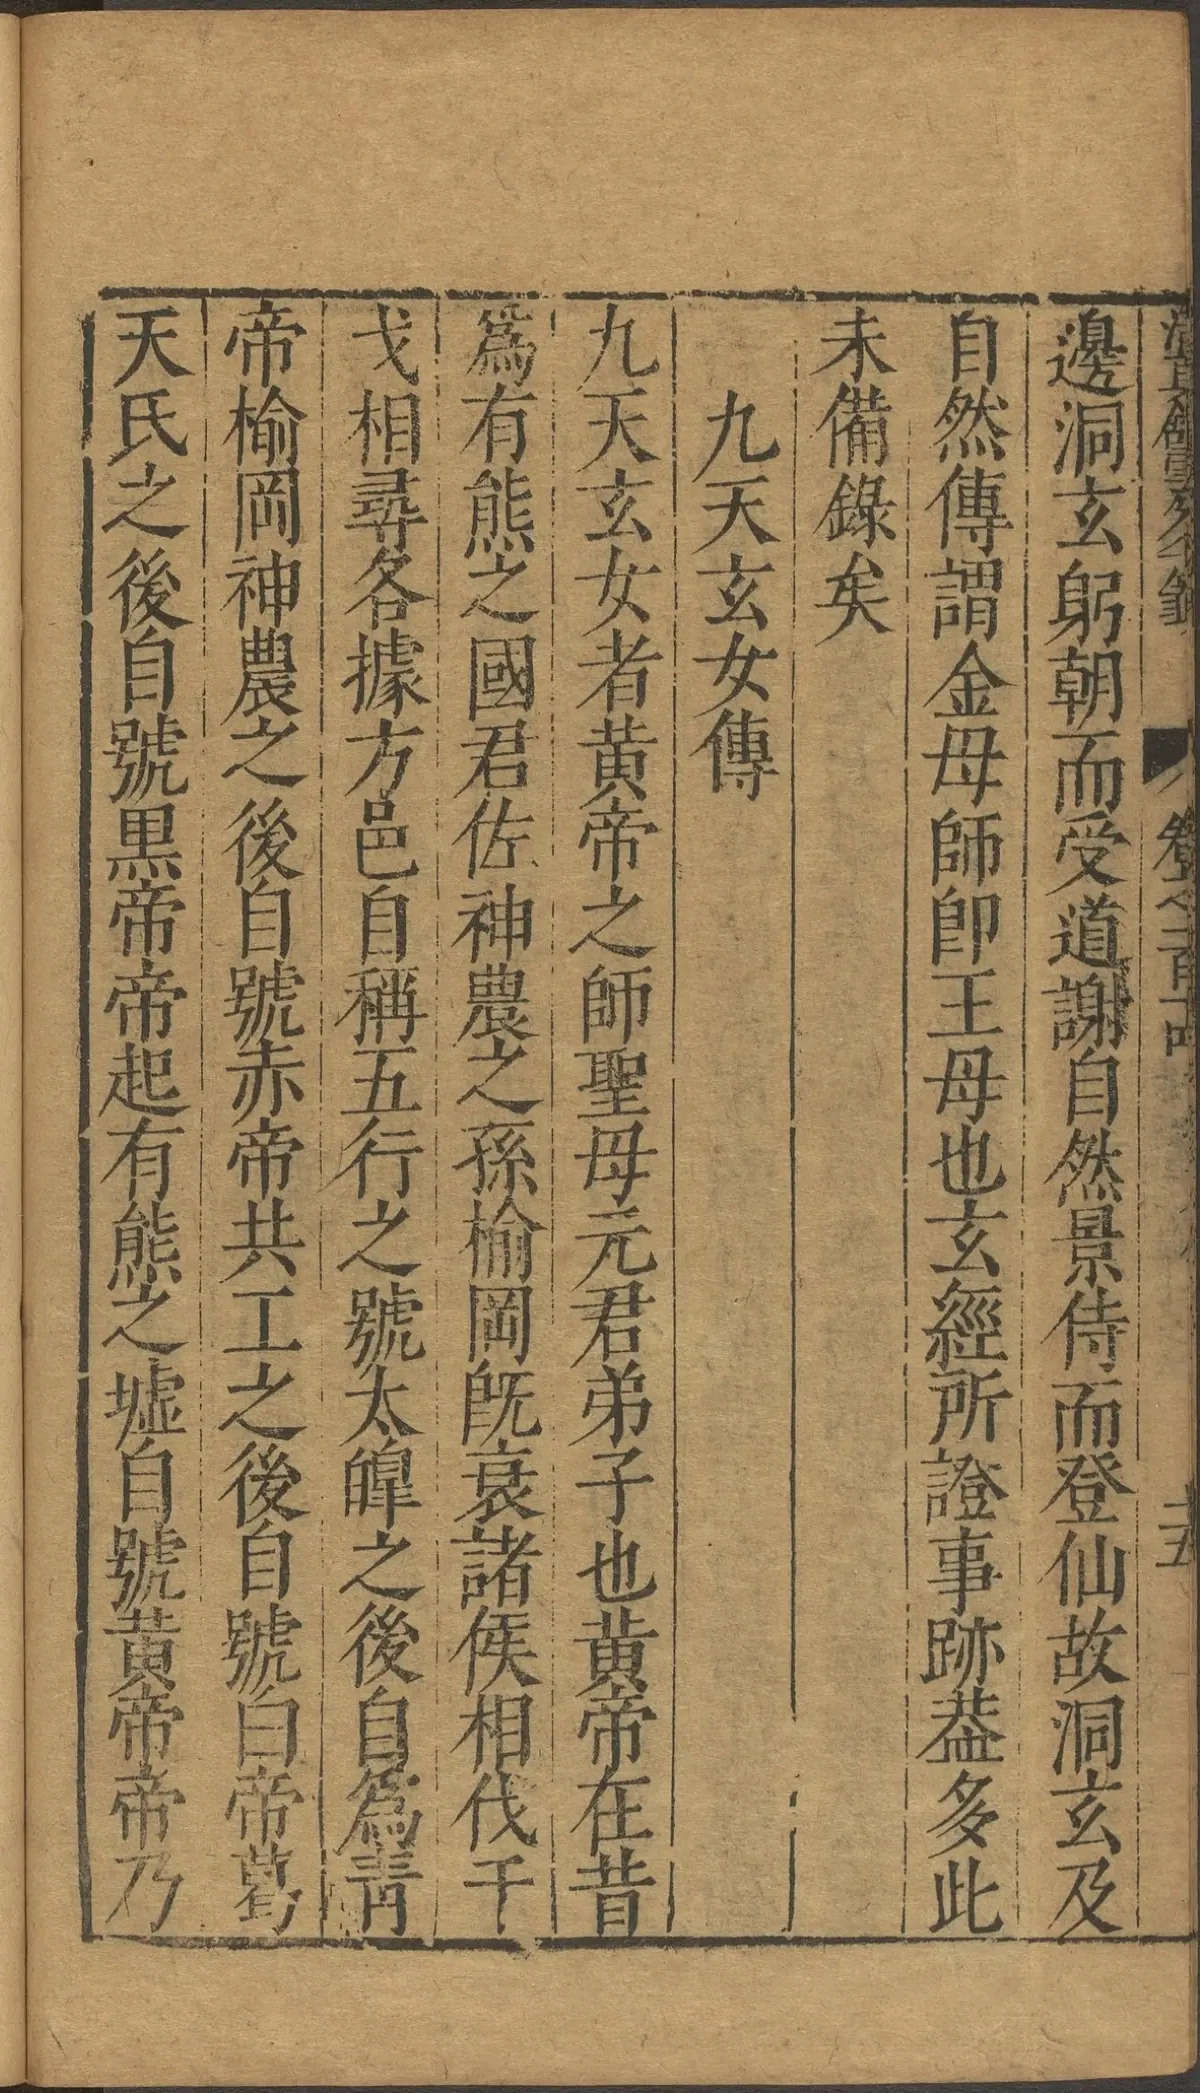 卷之一百十四
十五
邊洞玄躬朝而受道謝自然景侍而登仙故洞玄及
自然傳謂金母師卽王母也玄經所證事跡葢多此
未備錄矣
九天玄女傳
九天玄女者黃帝之師聖母元君弟子也黃帝在昔
爲有熊之國君佐神農之孫榆岡旣衰諸侯相伐干
戈相尋各據方邑自稱五行之號太皡之後自爲靑
帝榆岡神農之後自號赤帝共工之後自號白帝葛
天氏之後自號黒帝帝起有熊之墟自號黃帝帝乃